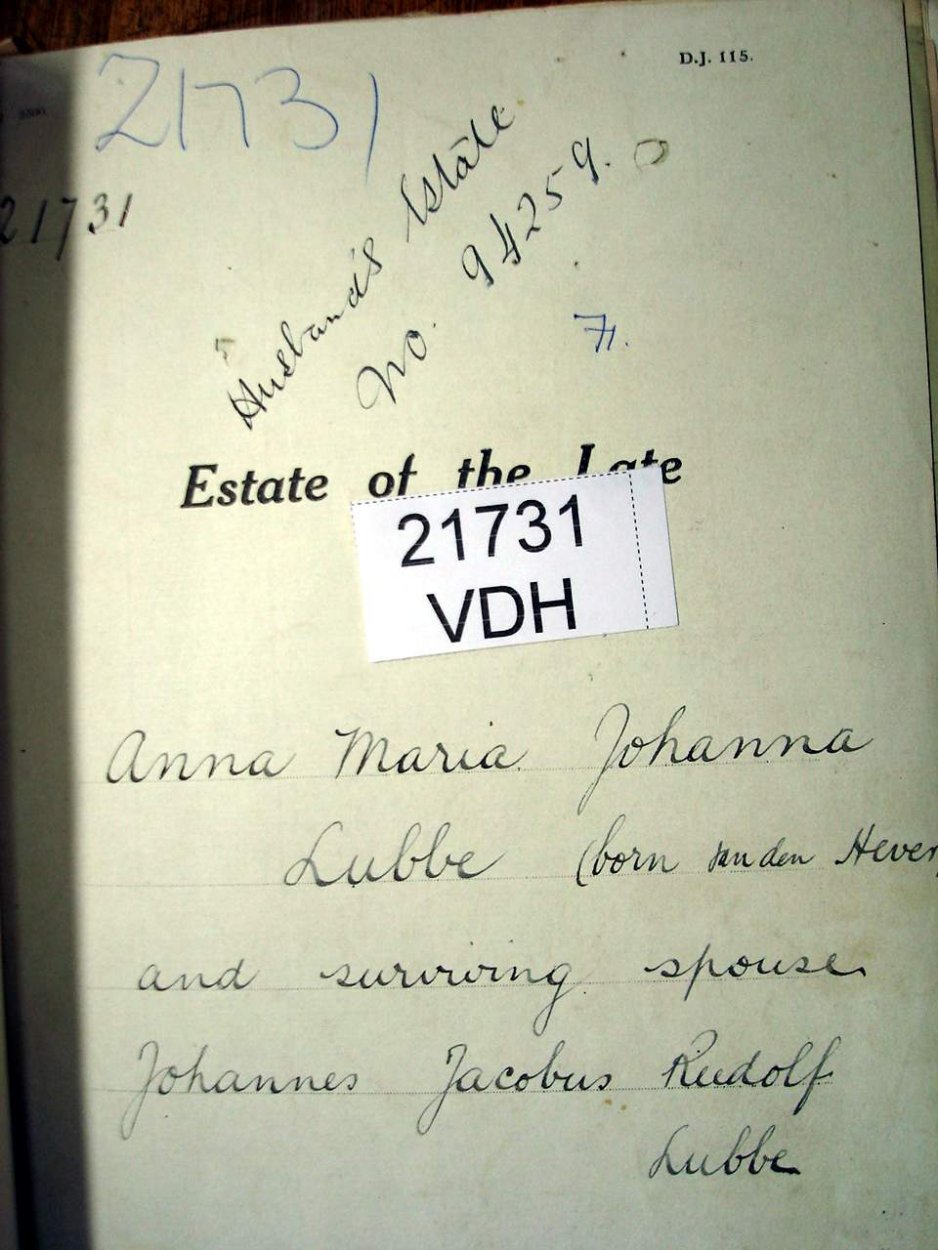 D.J. 115.
21731
21731
Husband's Estate
No. 94259.
Estate of the Late
21731
VDH
Anna Maria Johanna
Lubbe (born van den Hever
and surviving spouse
Johannes Jacobus Rudolf
Lubbe